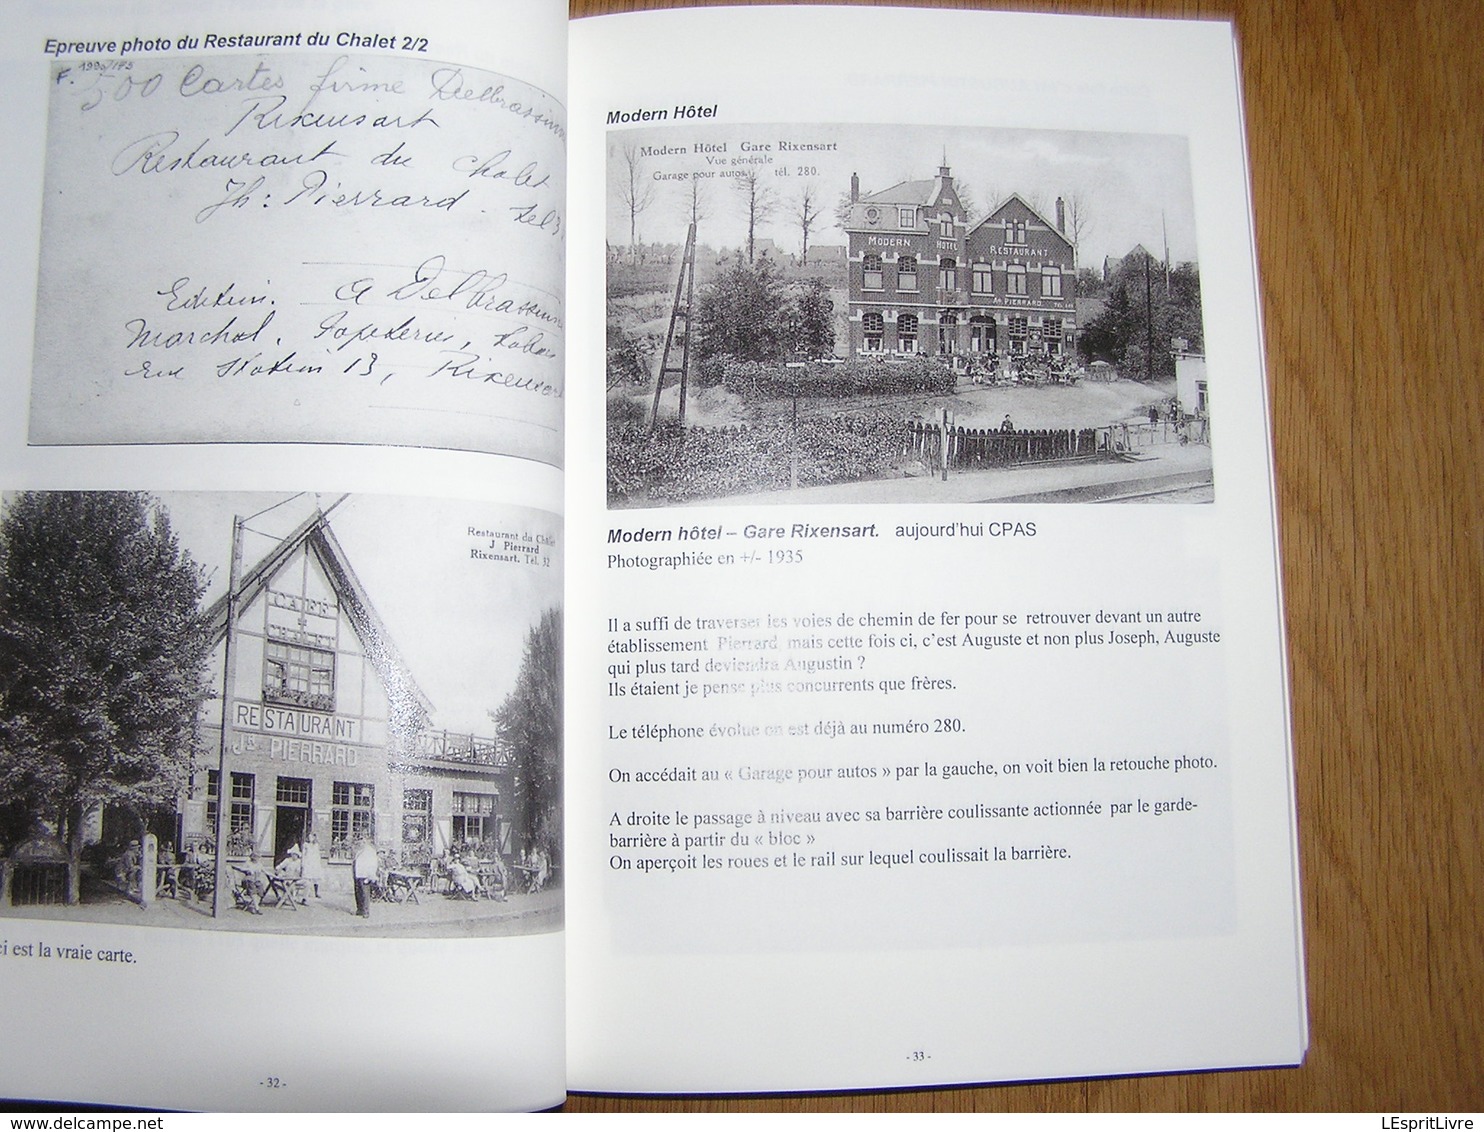 Epreuve photo du Restaurant du Chalet 2/2
F. 1990/173
500 Cartes firme Delbrassinne
Rixensart
Restaurant du Chalet
Jh : Pierrard - tel 3
Edition. A Delbrassinne
Marchal. Papeteries, tabacs
rue Station 13, Rixensart
Restaurant du Chalet
J Pierrard
Rixensart. Tél. 32
CAFÉ
RESTAURANT
Jh PIERRARD
ci est la vraie carte.
- 32 -
Modern Hôtel
Modern Hôtel Gare Rixensart
Vue générale
Garage pour autos tél. 280.
MODERN HOTEL RESTAURANT
Ate PIERRARD TEL 280
Modern hôtel – Gare Rixensart. aujourd'hui CPAS
Photographiée en +/- 1935
Il a suffi de traverser les voies de chemin de fer pour se retrouver devant un autre
établissement Pierrard, mais cette fois ci, c'est Auguste et non plus Joseph, Auguste
qui plus tard deviendra Augustin ?
Ils étaient je pense plus concurrents que frères.
Le téléphone évolue on est déjà au numéro 280.
On accédait au « Garage pour autos » par la gauche, on voit bien la retouche photo.
A droite le passage à niveau avec sa barrière coulissante actionnée par le garde-
barrière à partir du « bloc »
On aperçoit les roues et le rail sur lequel coulissait la barrière.
- 33 -
LEspritLivre